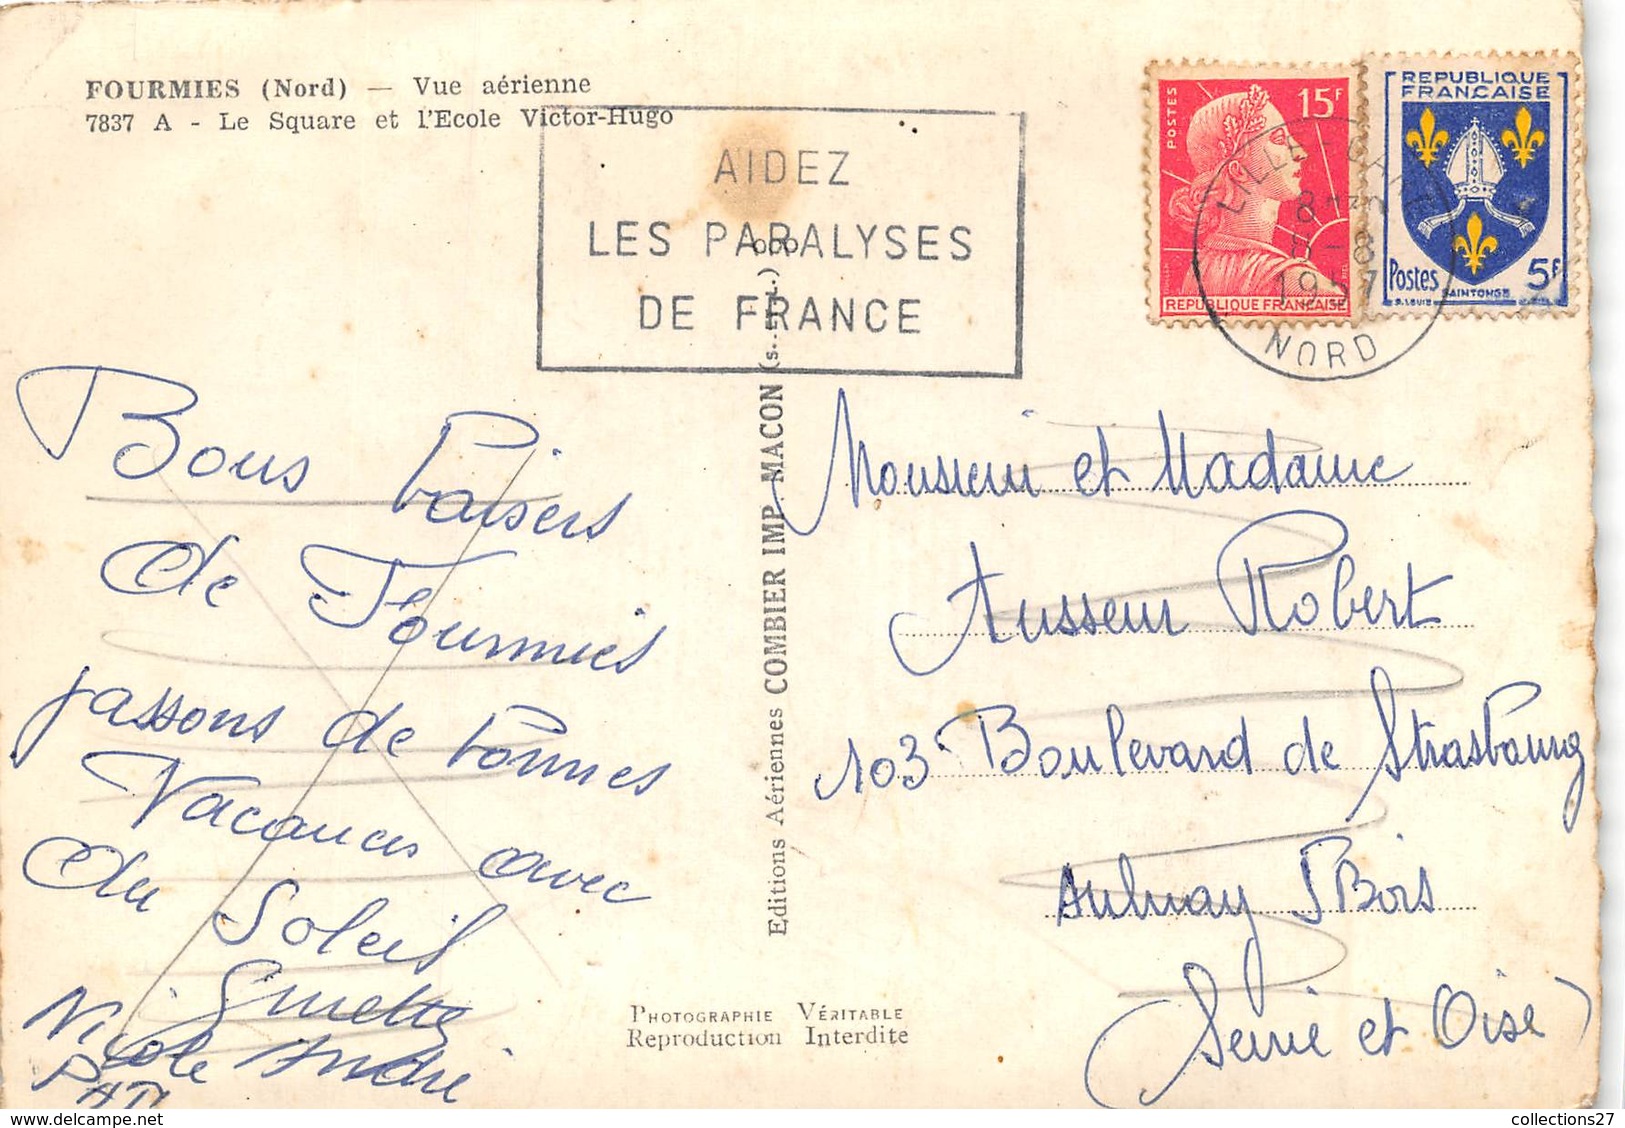 FOURMIES (Nord) — Vue aérienne
7837 A - Le Square et l'Ecole Victor-Hugo
AIDEZ
LES PARALYSES
DE FRANCE
POSTES
15F
REPUBLIQUE FRANCAISE
REPUBLIQUE
FRANCAISE
Postes 5F
SAINTONGE
LILLE-GARE
1957
NORD
Bons baisers
de Fourmies
passons de bonnes
Vacances avec
du Soleil
Ginette
Nicole André
Editions Aériennes COMBIER IMP. MACON
Monsieur et Madame
Ausseur Robert
103 Boulevard de Strasbourg
Aulnay S Bois
(Seine et Oise)
PHOTOGRAPHIE VÉRITABLE
Reproduction Interdite
collections27